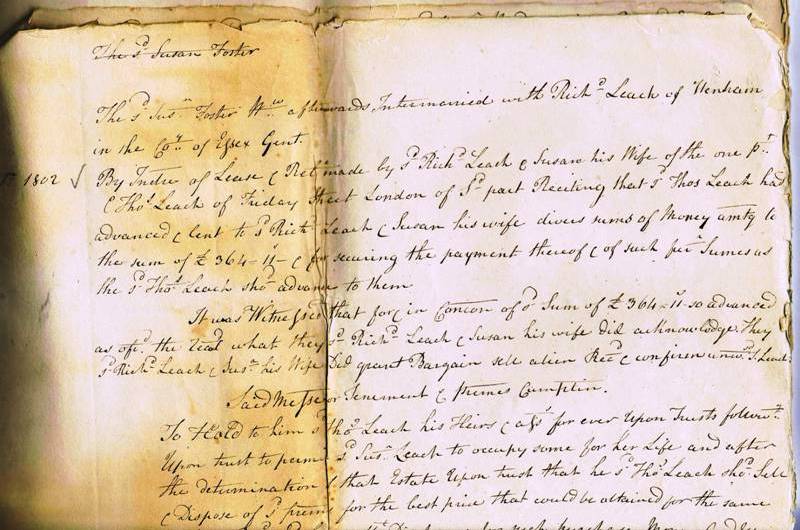 The sd Susan Foster
The sd Susn Foster Wo afterwards Intermarried with Richd Leach of Wenham
in the Coty of Essex Gent.
1802 By Indre of Lease & Rele made by sd Richd Leach & Susan his Wife of the one pt
& Thos Leach of Friday Street London of Sd part Reciting that sd Thos Leach had
advanced & lent to sd Richd Leach & Susan his wife divers sums of Money amtg to
the sum of £364-11- & for securing the payment thereof & of such furr Sumes as
the sd Thos Leach shod advance to them
It was Witnessed that for & in Concon of sd Sum of £364-11-so advanced
as afsd the rect what they sd Richd Leach & Susan his wife did acknowledge They
sd Richd Leach & Susn his Wife Did grant Bargain sell alien Rece & confirm unto sd T Leach
Said Messe or Tenement & premes Camplin.
To Hold to him sd Thos Leach his Heirs & ass for ever Upon Trusts followg
Upon trust to permit sd Susn Leach to occupy same for her Life and after
the determination & that Estate Upon trust that he sd Thos Leach shod Sell
& Dispose of sd prems for the best price that could be obtained for the same